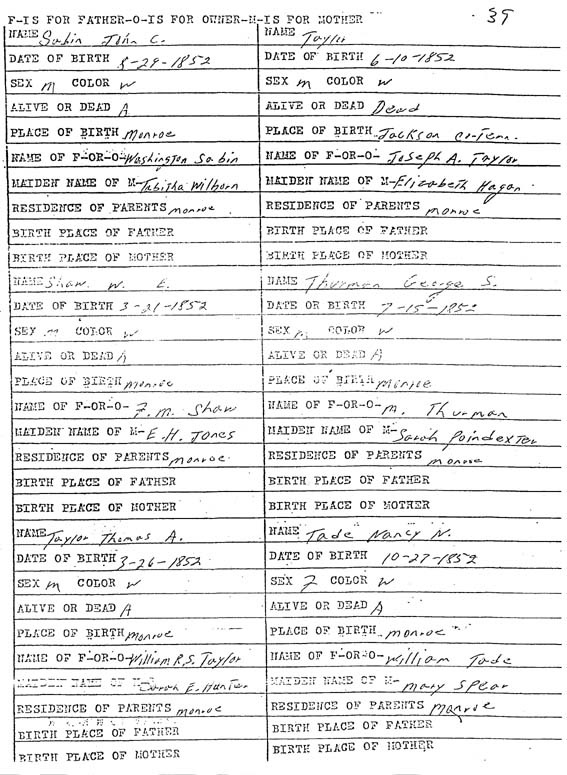 F-IS FOR FATHER-O-IS FOR OWNER-M-IS FOR MOTHER 39
NAME Sabin John C.
DATE OF BIRTH 8-29-1852
SEX M COLOR W
ALIVE OR DEAD A
PLACE OF BIRTH Monroe
NAME OF F-OR-O-Washington Sabin
MAIDEN NAME OF M-Tabitha Wilborn
RESIDENCE OF PARENTS Monroe
BIRTH PLACE OF FATHER
BIRTH PLACE OF MOTHER
NAME Shaw W. E.
DATE OF BIRTH 3-21-1852
SEX M COLOR W
ALIVE OR DEAD A
PLACE OF BIRTH Monroe
NAME OF F-OR-O- F. M. Shaw
MAIDEN NAME OF M-E.H. Jones
RESIDENCE OF PARENTS Monroe
BIRTH PLACE OF FATHER
BIRTH PLACE OF MOTHER
NAME Taylor Thomas A.
DATE OF BIRTH 3-26-1852
SEX M COLOR W
ALIVE OR DEAD A
PLACE OF BIRTH Monroe
NAME OF F-OR-O-William R.S. Taylor
MAIDEN NAME OF M-Sarah E. Hunter
RESIDENCE OF PARENTS Monroe
BIRTH PLACE OF FATHER
BIRTH PLACE OF MOTHER
NAME Taylor
DATE OF BIRTH 6-10-1852
SEX M COLOR W
ALIVE OR DEAD Dead
PLACE OF BIRTH Jackson Co-Tenn.
NAME OF F-OR-O- Joseph A. Taylor
MAIDEN NAME OF M-Elizabeth Hagan
RESIDENCE OF PARENTS Monroe
BIRTH PLACE OF FATHER
BIRTH PLACE OF MOTHER
NAME Thurman George S.
DATE OR BIRTH 7-15-1852
SEX M COLOR W
ALIVE OR DEAD A
PLACE OF BIRTH Monroe
NAME OF F-OR-O-M. Thurman
MAIDEN NAME OF M-Sarah Poindexter
RESIDENCE OF PARENTS Monroe
BIRTH PLACE OF FATHER
BIRTH PLACE OF MOTHER
NAME Tade Nancy N.
DATE OF BIRTH 10-27-1852
SEX F COLOR W
ALIVE OR DEAD A
PLACE OF BIRTH Monroe
NAME OF F-OR-O-William Tade
MAIDEN NAME OF M-Mary Spear
RESIDENCE OF PARENTS Monroe
BIRTH PLACE OF FATHER
BIRTH PLACE OF MOTHER